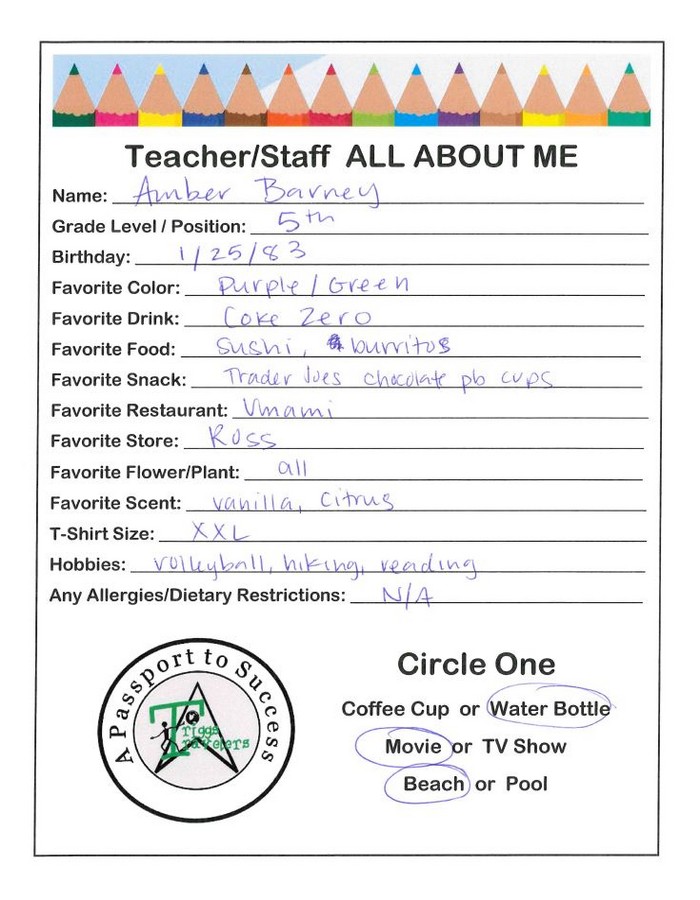 Teacher/Staff ALL ABOUT ME
Name: Amber Barney
Grade Level / Position: 5th
Birthday: 1/25/83
Favorite Color: Purple / Green
Favorite Drink: Coke Zero
Favorite Food: Sushi, burritos
Favorite Snack: Trader Joes chocolate pb cups
Favorite Restaurant: Umami
Favorite Store: Ross
Favorite Flower/Plant: all
Favorite Scent: vanilla, citrus
T-Shirt Size: XXL
Hobbies: volleyball, hiking, reading
Any Allergies/Dietary Restrictions: N/A
A Passport to Success
Triggs
Travelers
Circle One
Coffee Cup or Water Bottle
Movie or TV Show
Beach or Pool